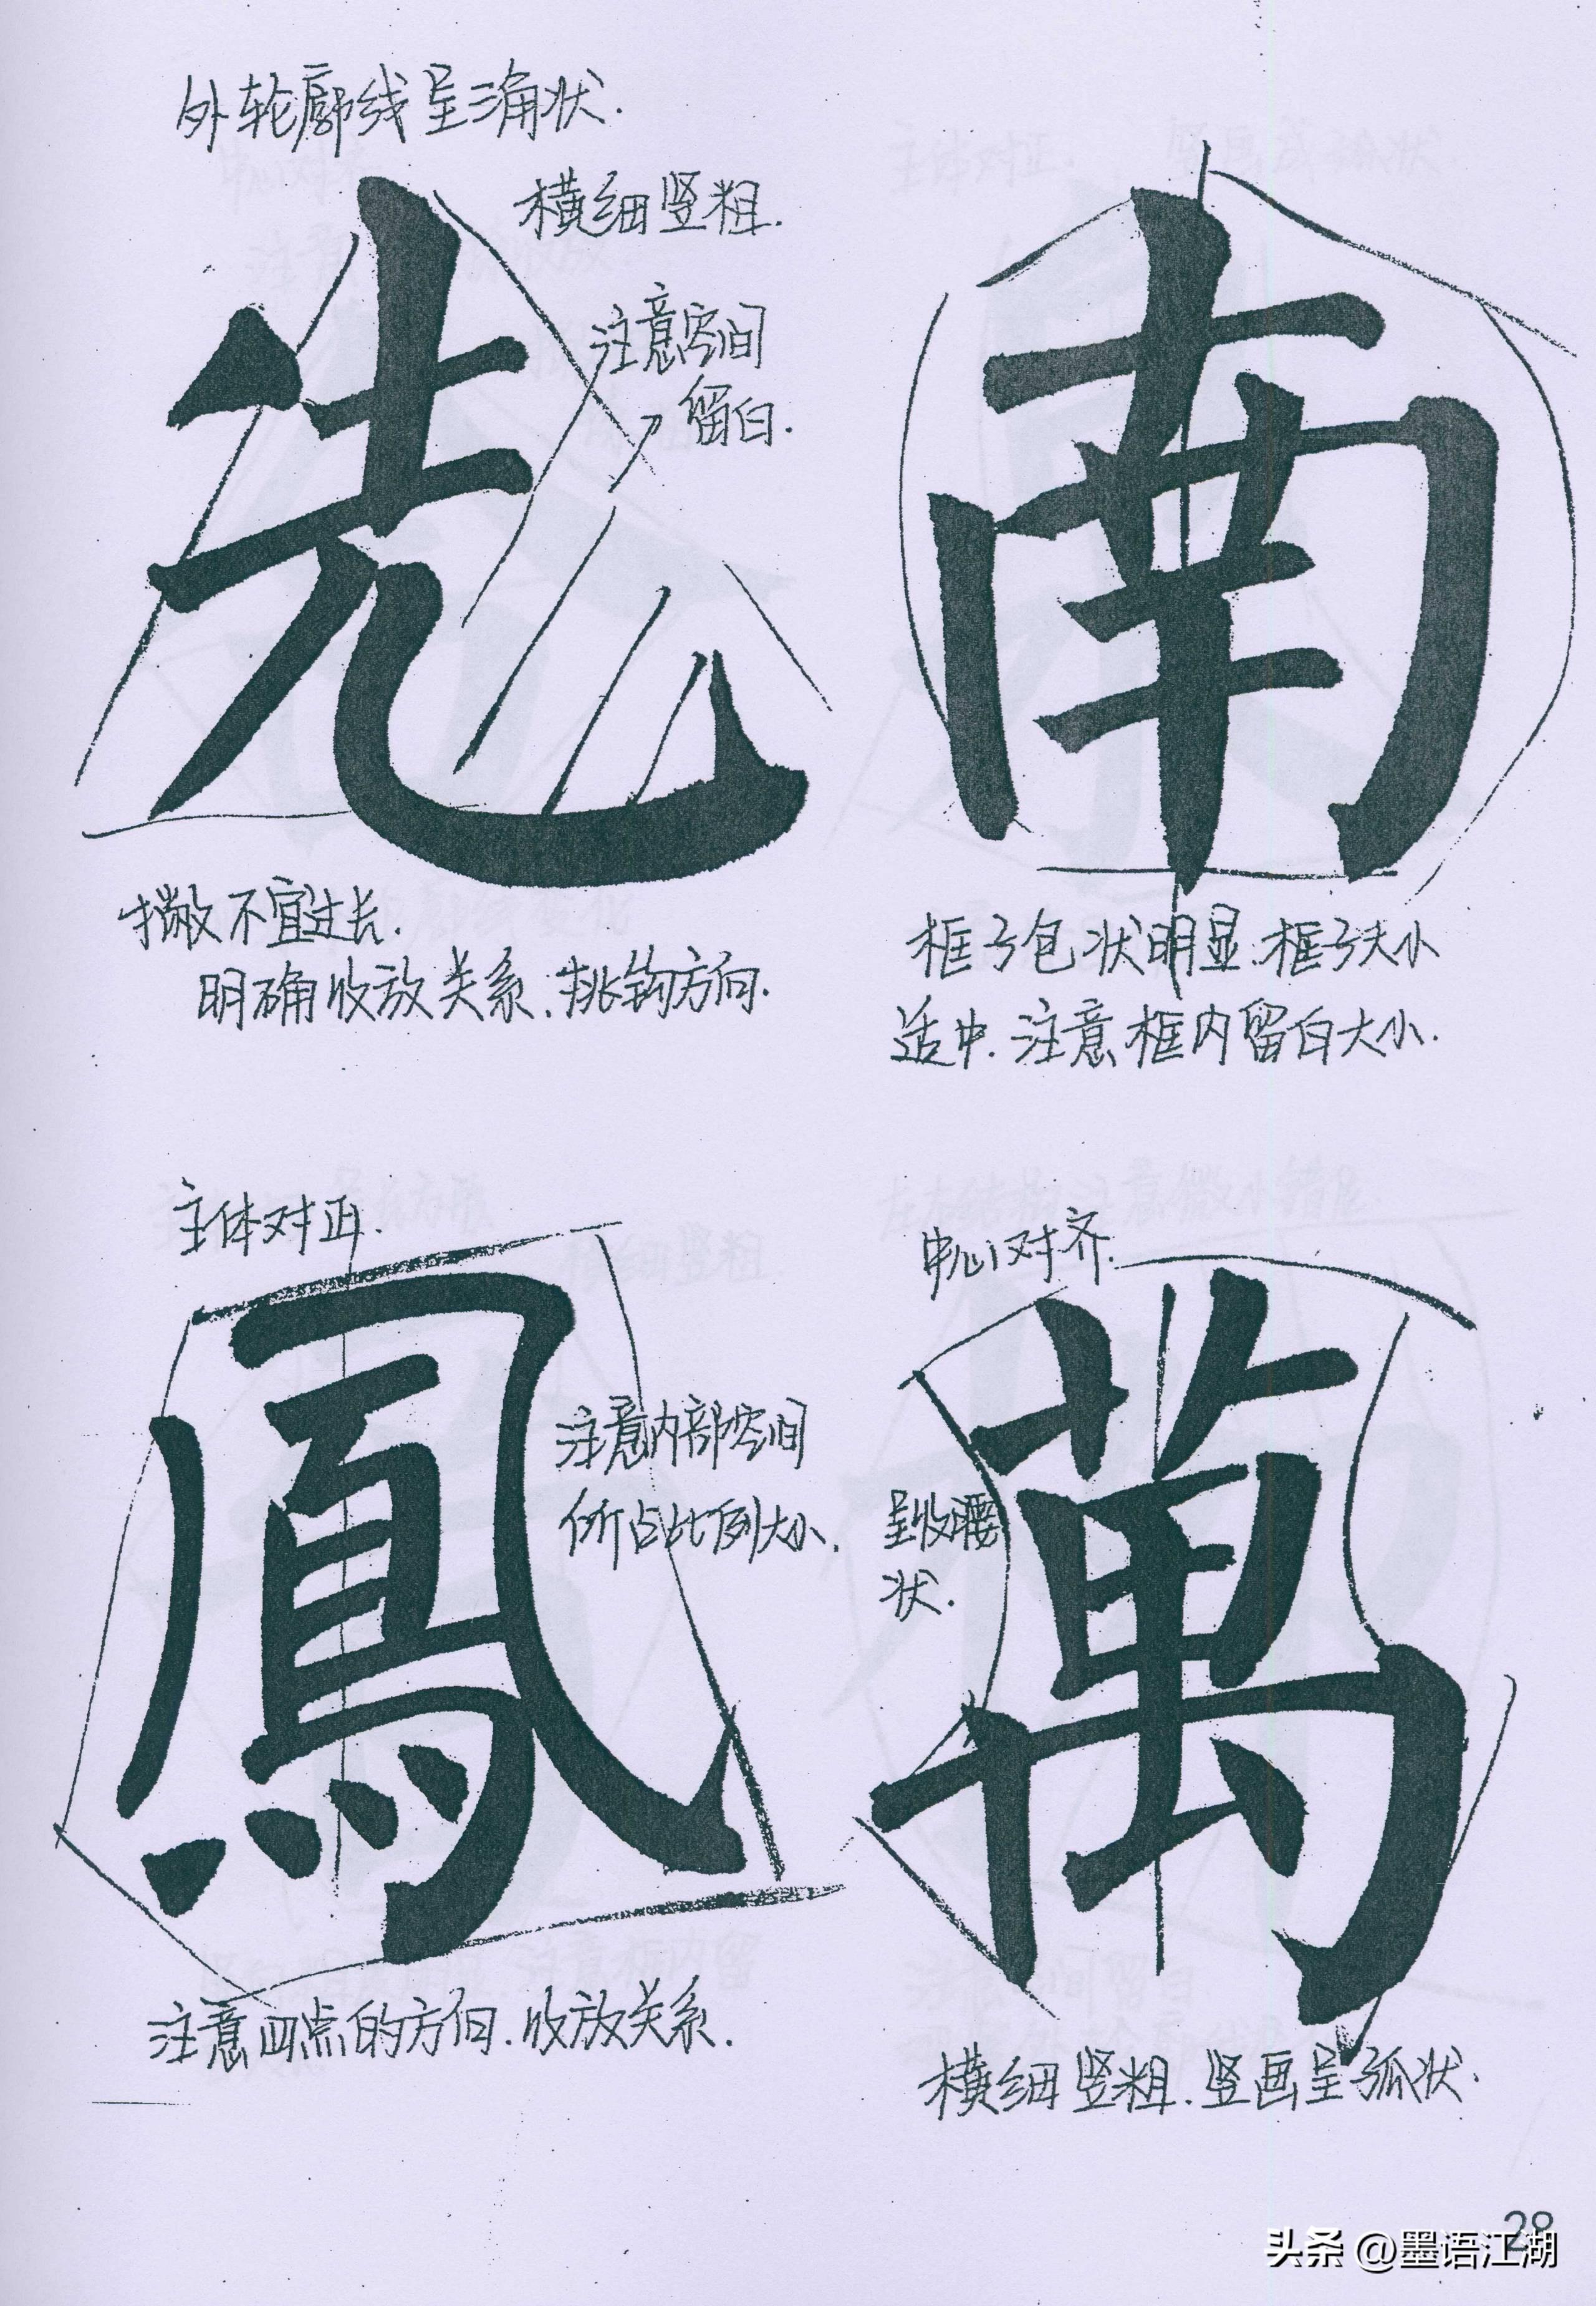 外轮廓线呈三角状.
横细竖粗.
注意空间
留白.
先
撇不宜过长.
明确收放关系.挑钩方向.
南
框子包状明显.框子大小
适中.注意框内留白大小.
主体对正.
鳳
注意内部空间
所占比例大小.
注意四点的方向.收放关系.
中心对齐.
呈收腰
状.
萬
横细竖粗.竖画呈弧状.
28
头条 @墨语江湖